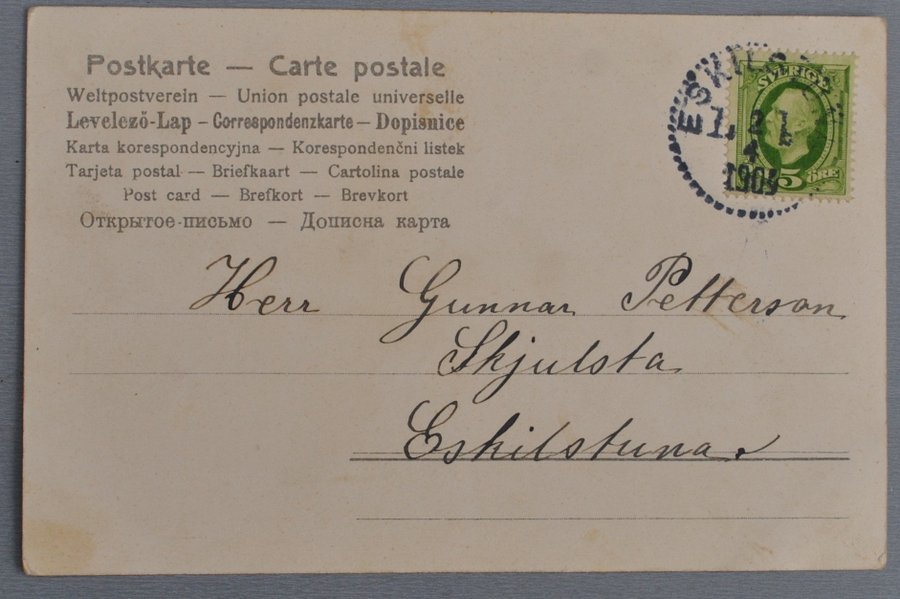 Postkarte — Carte postale
Weltpostverein — Union postale universelle
Levelező-Lap – Correspondenzkarte – Dopisnice
Karta korespondencyjna — Korespondenční listek
Tarjeta postal — Briefkaart — Cartolina postale
Post card — Brefkort — Brevkort
Открытое-письмо — Дописна карта
SVERIGE
5 ÖRE
4
1909
Herr Gunnar Petterson
Skjulsta
Eskilstuna.